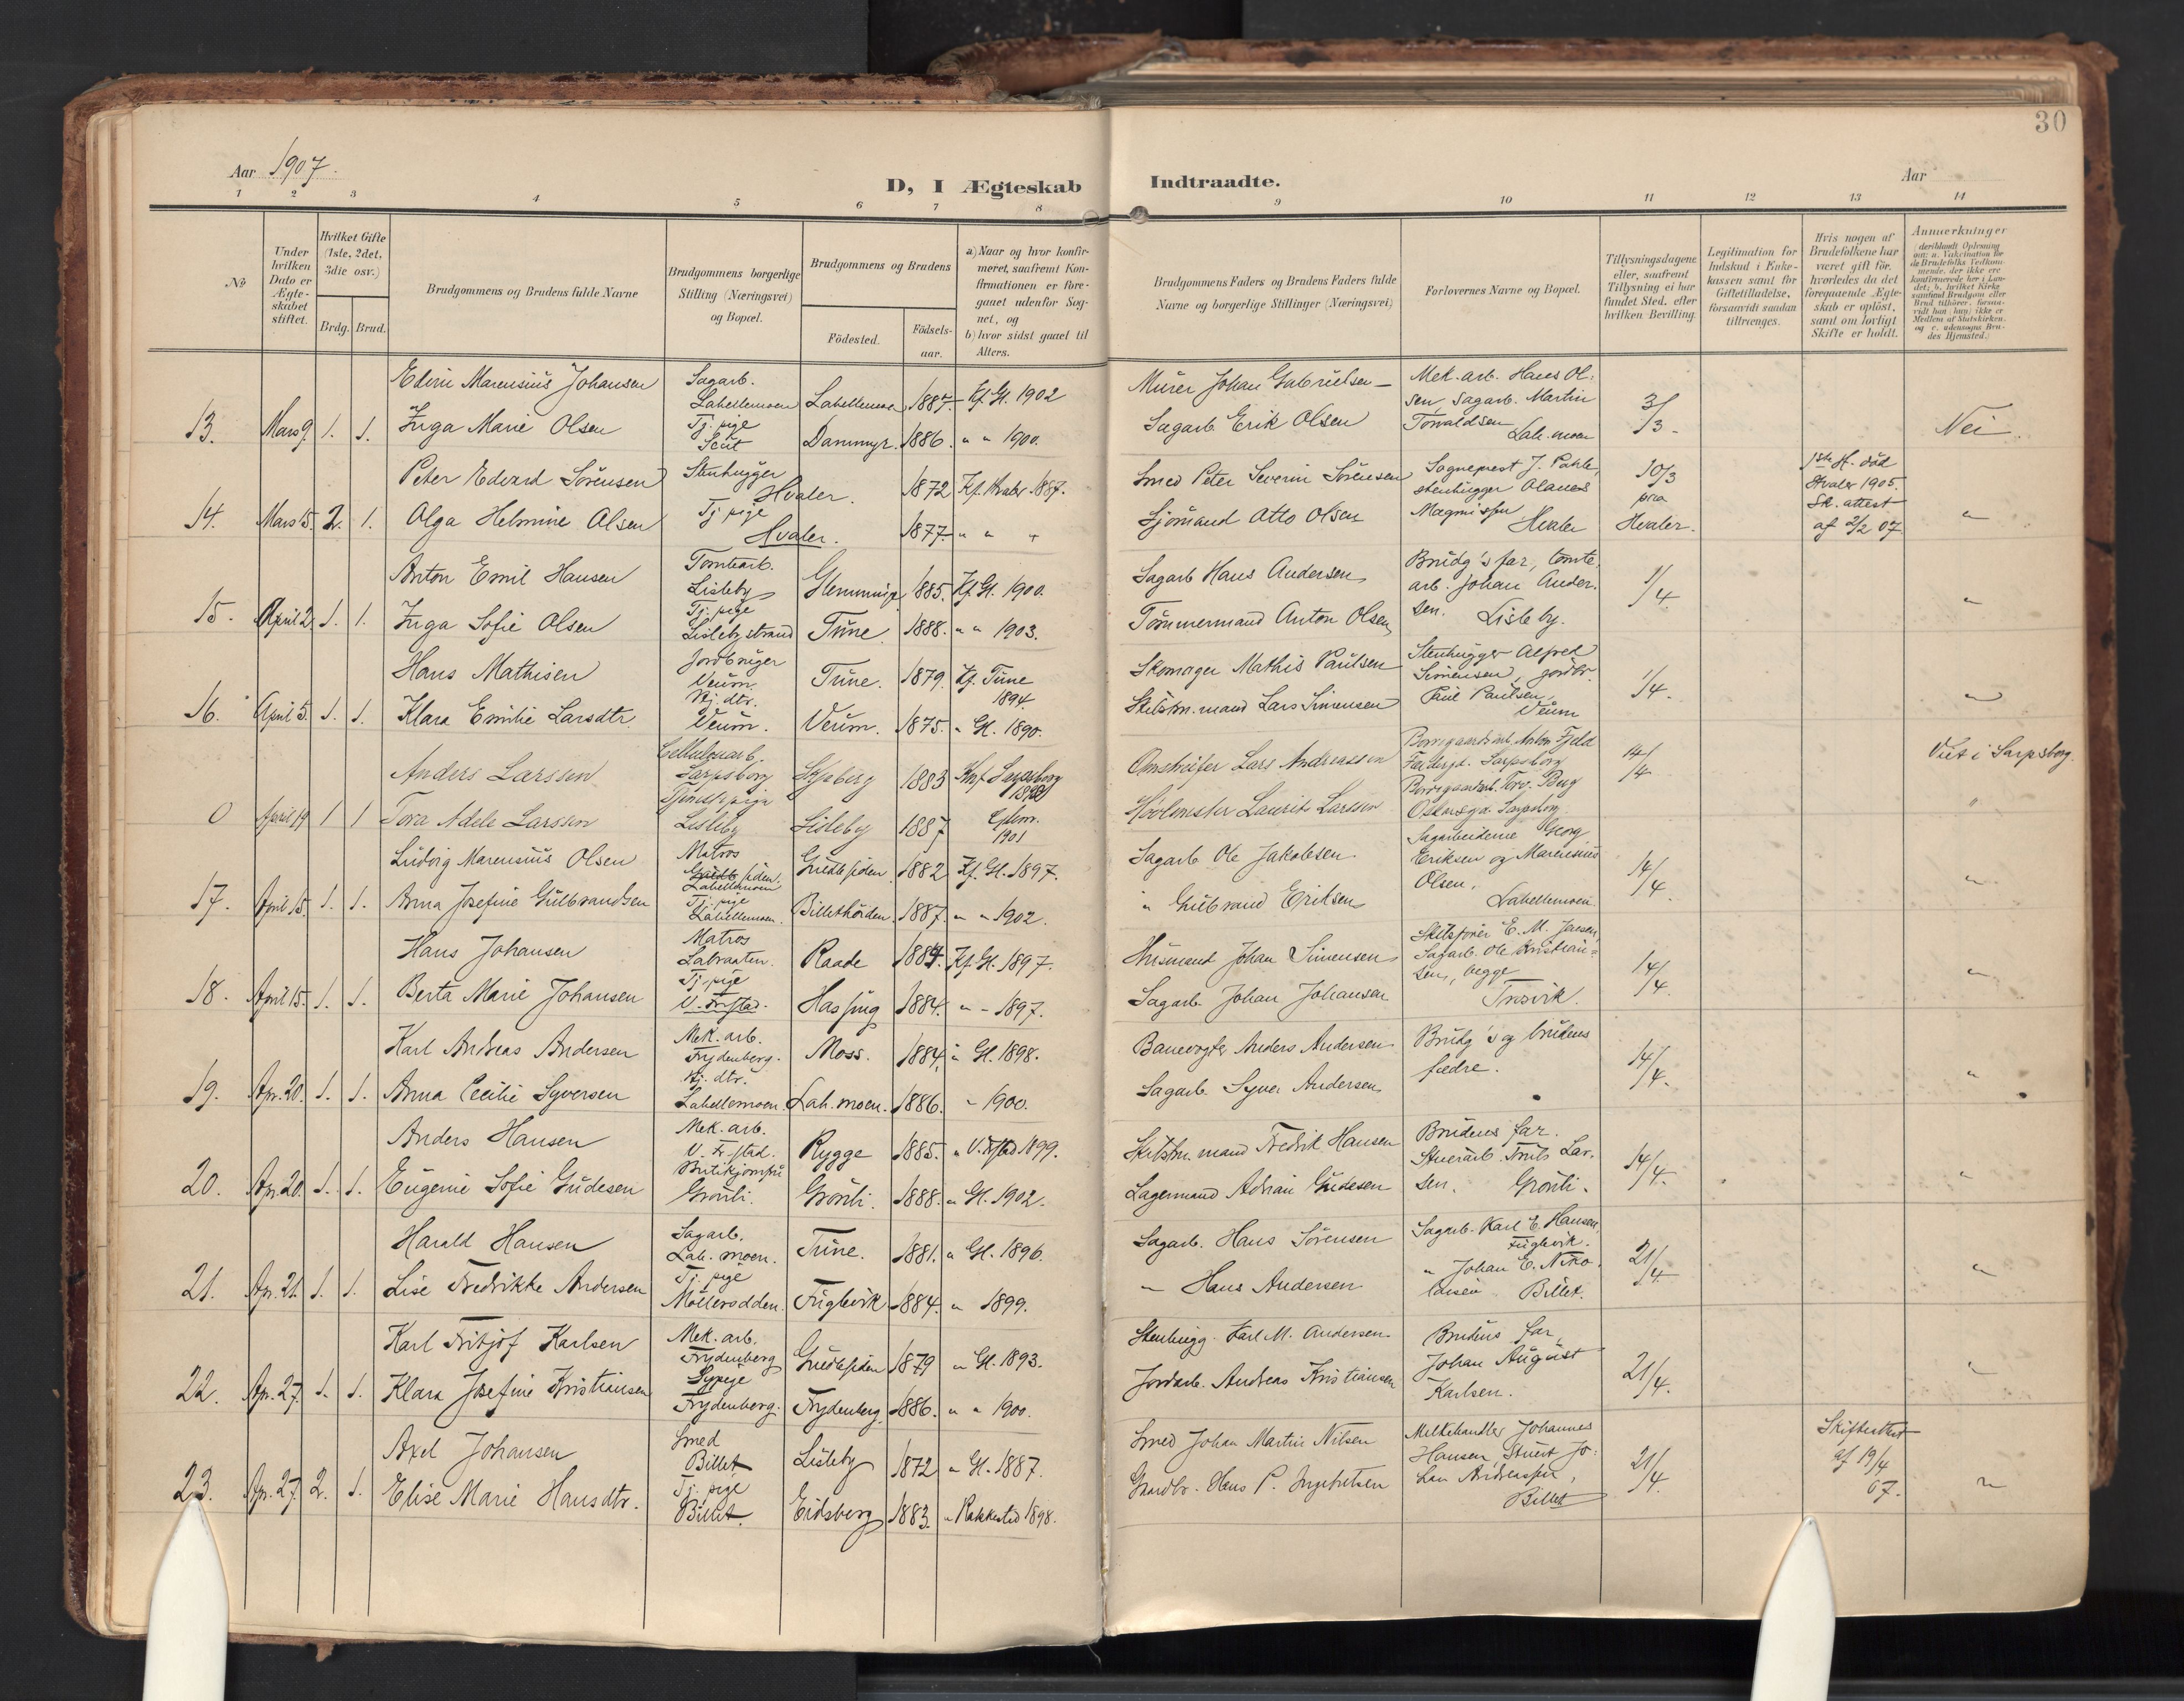 30
Aar 1907.
D, I Ægteskab
Indtraadte.
Aar
1 2 3 4 5 6 7 8 9 10 11 12 13 14
No
Under hvilken Dato er Ægteskabet stiftet.
Hvilket Gifte (1ste, 2det, 3die osv.)
Brdg. Brud.
Brudgommens og Brudens fulde Navne
Brudgommens borgerlige Stilling (Næringsvei) og Bopæl.
Brudgommens og Brudens
Födested.
Födselsaar.
a) Naar og hvor konfirmeret, saafremt Konfirmationen er foregaaet udenfor Sognet, og
b) hvor sidst gaaet til Alters.
Brudgommens Faders og Brudens Faders fulde Navne og borgerlige Stillinger (Næringsvei)
Forlovernes Navne og Bopæl.
Tillysningsdagene eller, saafremt Tillysning ei har fundet Sted, efter hvilken Bevilling.
Legitimation for Indskud i Enkekassen samt for Giftetilladelse, forsaavidt saadan tiltrænges.
Hvis nogen af Brudefolkene har været gift för, hvorledes da det foregaaende Ægteskab er oplöst, samt om lovligt Skifte er holdt.
Anmærkninger
Edvin Marensius Johansen Sagarb. Labellemoen Labellemoen 1887. Kf. Gl. 1902 Murer Johan Gabrielsen Mek. arb. Hans Olsen, Sagarb. Martin
13. Mars 9. 1. 1. Inga Marie Olsen Tj. pige Dammyr. 1886. " " 1900. Sagarb. Erik Olsen Torvaldsen Lab. moen 3/3. Nei.
Peter Edvard Sörensen Stenhugger Hvaler. 1872 Kf. Hvaler 1887. Smed Peter Severin Sörensen Sogneprest J. Pahle, stenhugger Olaves 10/3 1ste H. död Hvaler 1905.
14. Mars 15. 2. 1. Olga Helmine Olsen Tj pige Hvaler. 1877. " " " Sjömand Otto Olsen Magnussen Hvaler fra Hvaler. Sk. attest af 2/2 07 "
Anton Emil Hansen Tomtearb. Lisleby Glemminge 1885. Kf. Gl. 1900. Sagarb Hans Andersen Brudg's far, tomtearb. Johan Ander-
15. April 2. 1. 1. Inga Sofie Olsen Tj. pige Lislebystrand Tune 1888. " " 1903. Tömmermand Anton Olsen sen. Lisleby. 1/4 "
Hans Mathisen Jordbruger Veum. Tune. 1879. Kf. Tune 1894 Skomager Mathis Paulsen Stenhugger Alfred Simensen, jordbr.
16. April 5. 1. 1. Klara Emilie Larsdtr Hj. dtr. Veum. Veum. 1875. " Gl. 1890. Lars Simensen Paul Paulsen, Veum 1/4. "
Anders Larssen Cellulosearb. Sarpsborg Skjeberg 1883 Konf Sarpsborg Lars Andreassen Borregaardsarb. Anton Fjeld Sarpsborg 14/4 Viet i Sarpsborg.
0 April 19 1 1 Tora Adele Larssen Tjenestepige Lisleby Lisleby 1887 Glem. 1901 Høvlemester Laurits Larssen Borregaardsarb. Torv. Berg Oskarsgd. Sarpsborg "
Ludvig Marensius Olsen Matros Labellemoen Gudesiden 1882 Kf. Gl. 1897. Sagarb Ole Jakobsen Sagarbeiderne Georg Eriksen og Marensius
17. April 15. 1. 1. Anna Josefine Gulbrandsen Tj. pige Labellemoen. Billethöiden. 1887. " " 1902. " Gulbrand Eriksen Olsen, Labellemoen 14/4. "
Hans Johansen Matros Labraaten. Raade 1884. Kf. Gl. 1897. Husmand Johan Simensen E. M. Jensen, Sagarb. Ole Kristian-
18. April 15. 1. 1. Berta Marie Johansen Tj. pige V. Frstad. 1884. " - 1897. Sagarb Johan Johansen sen, begge Trosvik. 14/4. "
Karl Andreas Andersen Mek. arb. Frydenberg. Moss. 1884. " Gl. 1898. Banevogter Anders Andersen Brudg's og brudens
19. Apr. 20. 1. 1. Anna Cecilie Syversen Hj. dtr. Labellemoen. Lab. moen. 1886. " 1900. Sagarb. Syver Andersen fædre. 14/4. "
Anders Hansen Mek. arb. V. Fr.stad. Rygge 1885. " V. Frstad 1899. Fredrik Hansen Brudens far.
20. Apr. 20. 1. 1. Eugenie Sofie Gudesen Butikjomfru Grönli. Grönli. 1888. " Gl. 1902. Lagermand Adrian Gudesen Stuerarb. Frits Larsen. Grönli. 14/4. "
Harald Hansen Sagarb. Lab. moen. Tune. 1881. " Gl. 1896. Sagarb. Hans Sörensen Sagarb. Karl E. Hansen, Fuglevik.
21. Apr. 21. 1. 1. Lise Fredrikke Andersen Tj. pige Möllerodden. Fuglevik 1884. " 1899. " Hans Andersen " Johan E. Nikolaisen Billet. 21/4 "
Karl Fritjof Karlsen Mek. arb. Frydenberg Gudesiden 1879 " Gl. 1893. Stenhugg. Karl M. Andersen Brudens far,
22. Apr. 27. 1. 1. Klara Josefine Kristiansen Sypige Frydenberg. Frydenberg. 1886. " " 1900. Jordarb. Andreas Kristiansen Johan August Karlsen. 21/4. "
Axel Johansen Smed Billet Lisleby 1872 " Gl. 1887. Smed Johan Martin Nilsen Melkehandler Johannes Hansen, Stuert Jo- Skifteattest
23. Apr. 27. 2. 1. Elise Marie Hansdtr. Tj. pige Billet. Eidsberg 1883. " Rakkestad 1898. Gaardbr. Hans P. Ingebretsen han Andreassen, Billet 21/4. af 19/4 07. "